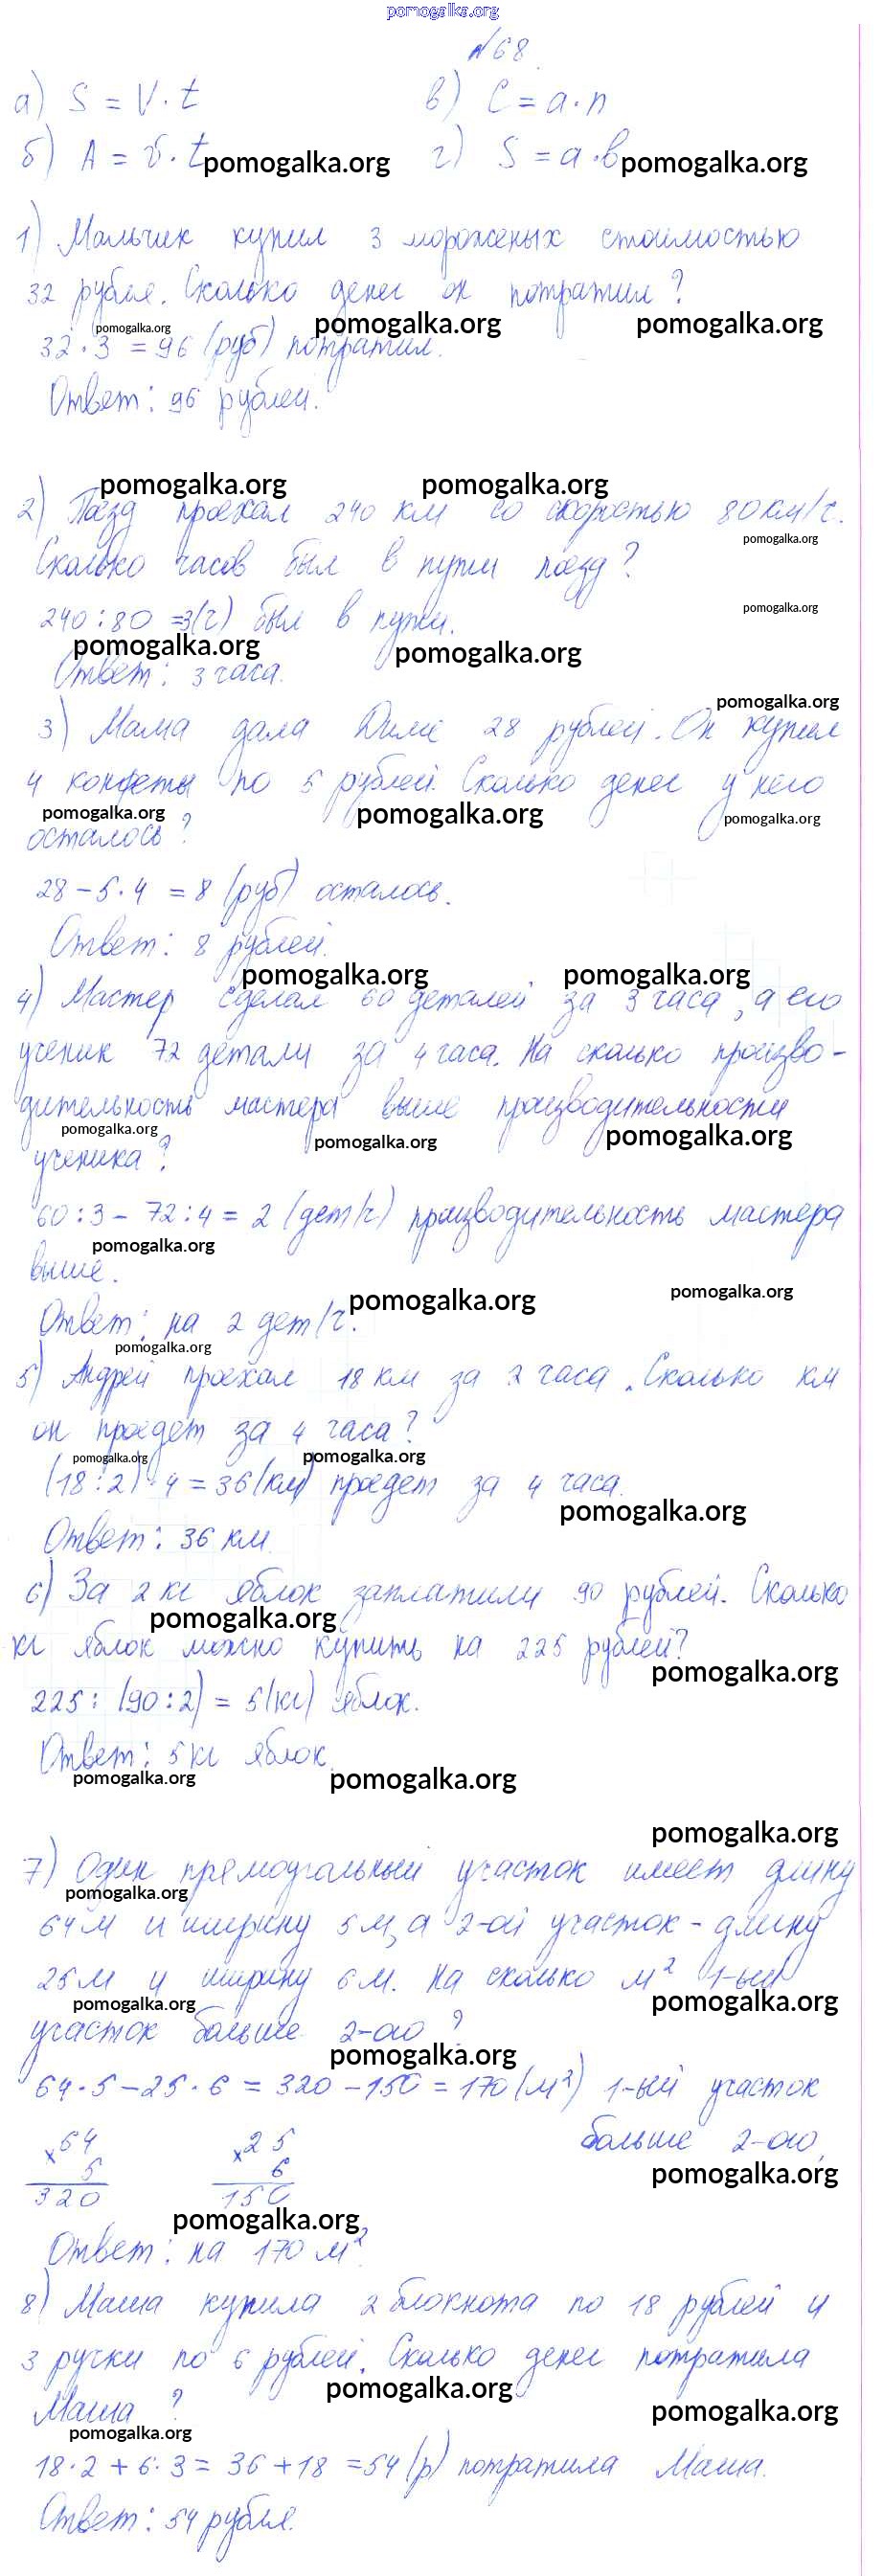 pomogalka.org
№68
а) S = V · t в) C = a · n
б) A = v · t г) S = a · b
pomogalka.org pomogalka.org
1) Мальчик купил 3 мороженых стоимостью
32 рубля. Сколько денег он потратил?
pomogalka.org pomogalka.org pomogalka.org
32 · 3 = 96 (руб) потратил.
Ответ: 96 рублей.
pomogalka.org pomogalka.org
2) Поезд проехал 240 км со скоростью 80 км/ч.
pomogalka.org
Сколько часов был в пути поезд?
240 : 80 = 3(ч) был в пути.
pomogalka.org
pomogalka.org pomogalka.org
Ответ: 3 часа.
pomogalka.org
3) Мама дала Диме 28 рублей. Он купил
4 конфеты по 5 рублей. Сколько денег у него
pomogalka.org pomogalka.org pomogalka.org
осталось?
28 - 5 · 4 = 8 (руб) осталось.
Ответ: 8 рублей.
pomogalka.org pomogalka.org
4) Мастер сделал 60 деталей за 3 часа, а его
ученик 72 детали за 4 часа. На сколько произво-
дительность мастера выше производительности
pomogalka.org pomogalka.org pomogalka.org
ученика?
60 : 3 - 72 : 4 = 2 (дет/ч) производительность мастера
pomogalka.org
выше.
pomogalka.org pomogalka.org
Ответ: на 2 дет/ч.
pomogalka.org
5) Андрей проехал 18 км за 2 часа. Сколько км
он проедет за 4 часа?
pomogalka.org pomogalka.org
(18 : 2) · 4 = 36 (км) проедет за 4 часа.
pomogalka.org
Ответ: 36 км.
6) За 2 кг яблок заплатили 90 рублей. Сколько
pomogalka.org
кг яблок можно купить на 225 рублей?
pomogalka.org
225 : (90 : 2) = 5 (кг) яблок.
Ответ: 5 кг яблок.
pomogalka.org pomogalka.org
pomogalka.org
7) Один прямоугольный участок имеет длину
pomogalka.org
64 м и ширину 5 м, а 2-ой участок - длину
25 м и ширину 6 м. На сколько м² 1-ый
pomogalka.org pomogalka.org
участок больше 2-ого?
pomogalka.org
64 · 5 - 25 · 6 = 320 - 150 = 170 (м²) 1-ый участок
больше 2-ого.
x 64 x 25
5 6
320 150
pomogalka.org
pomogalka.org
Ответ: на 170 м².
8) Маша купила 2 блокнота по 18 рублей и
3 ручки по 6 рублей. Сколько денег потратила
pomogalka.org pomogalka.org
Маша?
pomogalka.org
18 · 2 + 6 · 3 = 36 + 18 = 54 (р) потратила Маша.
Ответ: 54 рубля.